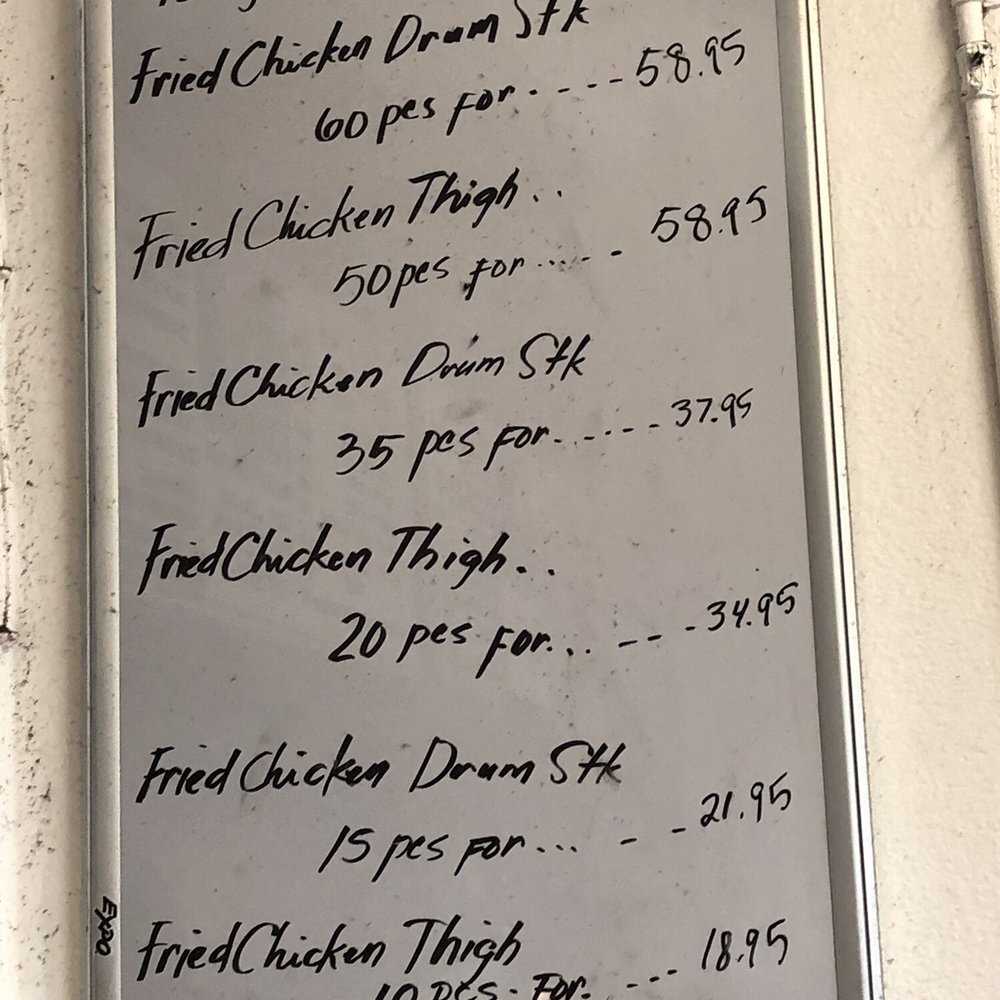 Fried Chicken Drum Stk
60 pcs for . - - - - 58.95
Fried Chicken Thigh . .
50 pcs for ..... - 58.95
Fried Chicken Drum Stk
35 pcs for. . - - - - 37.95
Fried Chicken Thigh . .
20 pcs for. . . - - - 34.95
Fried Chicken Drum Stk
15 pcs for . . . - - 21.95
Fried Chicken Thigh
10 pcs - for. - - - 18.95
EXPO